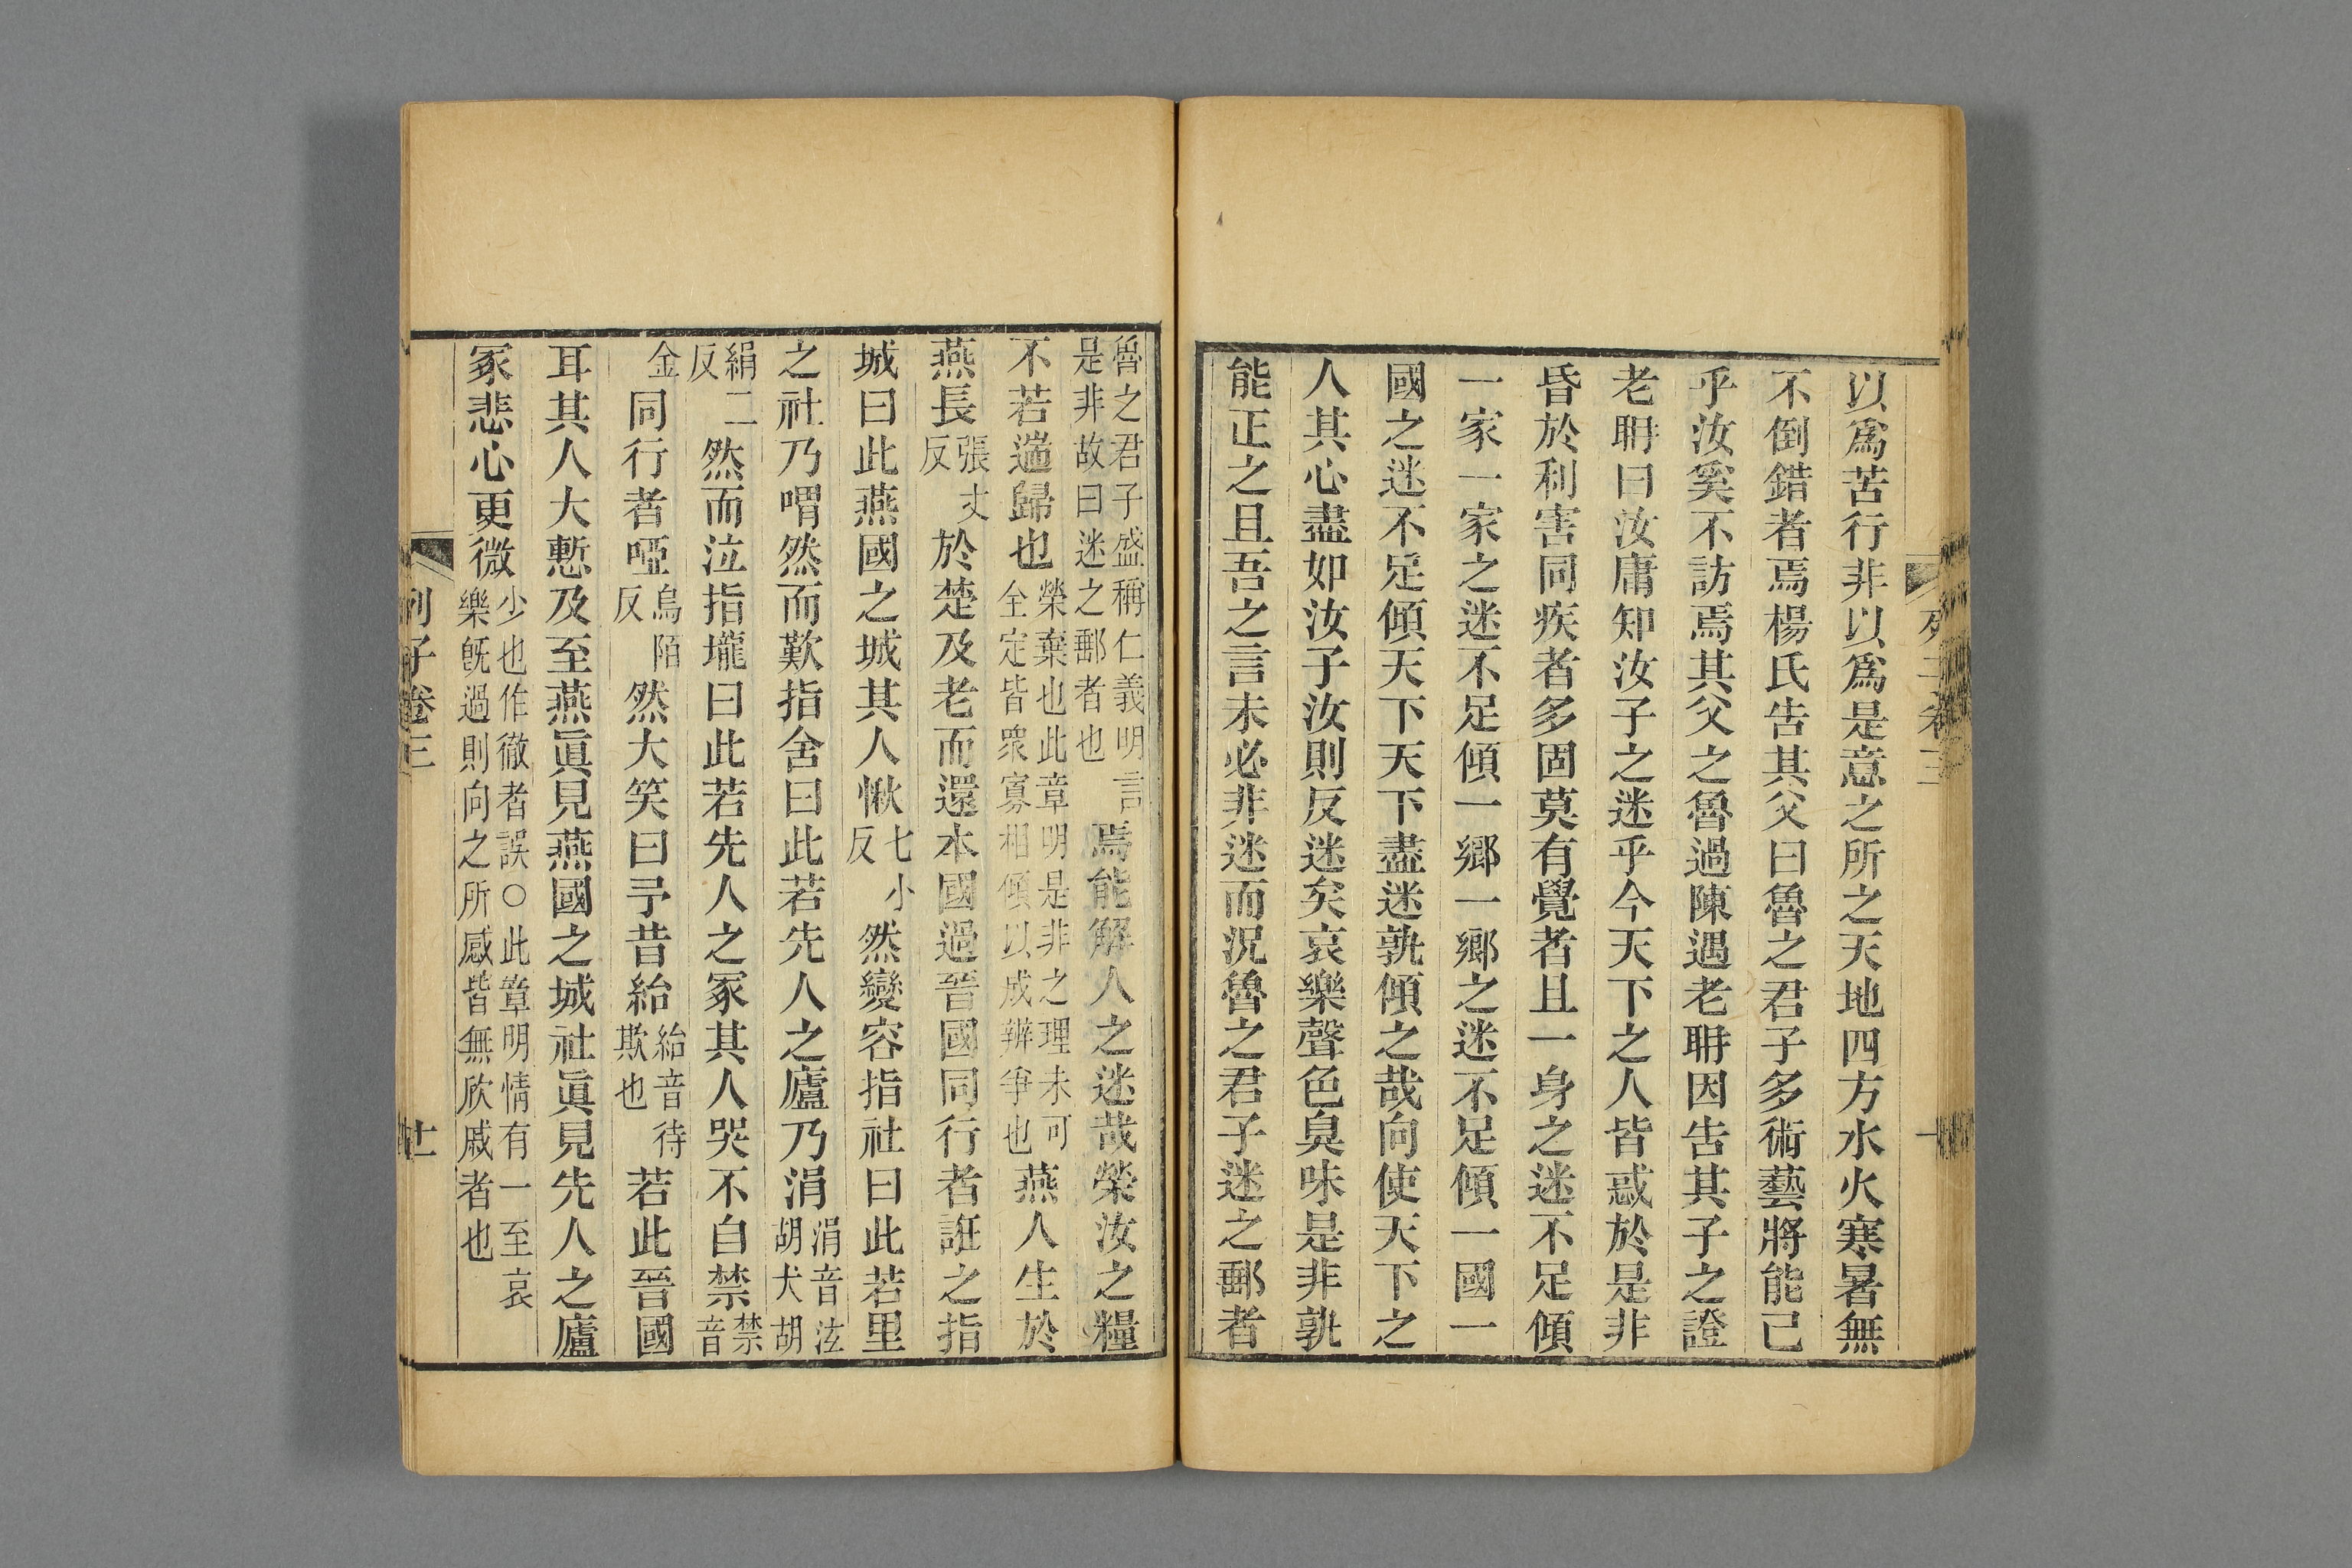 列子卷三
以爲苦行非以爲是意之所之天地四方水火寒暑無
不倒錯者焉楊氏告其父曰魯之君子多術藝將能已
乎汝奚不訪焉其父之魯過陳遇老聃因告其子之證
老聃曰汝庸知汝子之迷乎今天下之人皆惑於是非
昏於利害同疾者多固莫有覺者且一身之迷不足傾
一家一家之迷不足傾一鄉一鄉之迷不足傾一國一
國之迷不足傾天下天下盡迷孰傾之哉向使天下之
人其心盡如汝子汝則反迷矣哀樂聲色臭味是非孰
能正之且吾之言未必非迷而況魯之君子迷之郵者
魯之君子盛稱仁義明言是非故曰迷之郵者也焉能解人之迷哉榮汝之糧
不若遄歸也榮棄也此章明是非之理未可全定皆眾寡相傾以成辨爭也燕人生於
燕長張丈反於楚及老而還本國過晉國同行者誑之指
城曰此燕國之城其人愀七小反然變容指社曰此若里
之社乃喟然而歎指舍曰此若先人之廬乃涓涓音泫胡犬胡
絹二反然而泣指壠曰此若先人之冢其人哭不自禁禁音
金同行者啞烏陌反然大笑曰予昔紿紿音待欺也若此晉國
耳其人大慙及至燕眞見燕國之城社眞見先人之廬
冢悲心更微少也作徹者誤○此章明情有一至哀樂旣過則向之所感皆無欣戚者也
列子卷三
十一